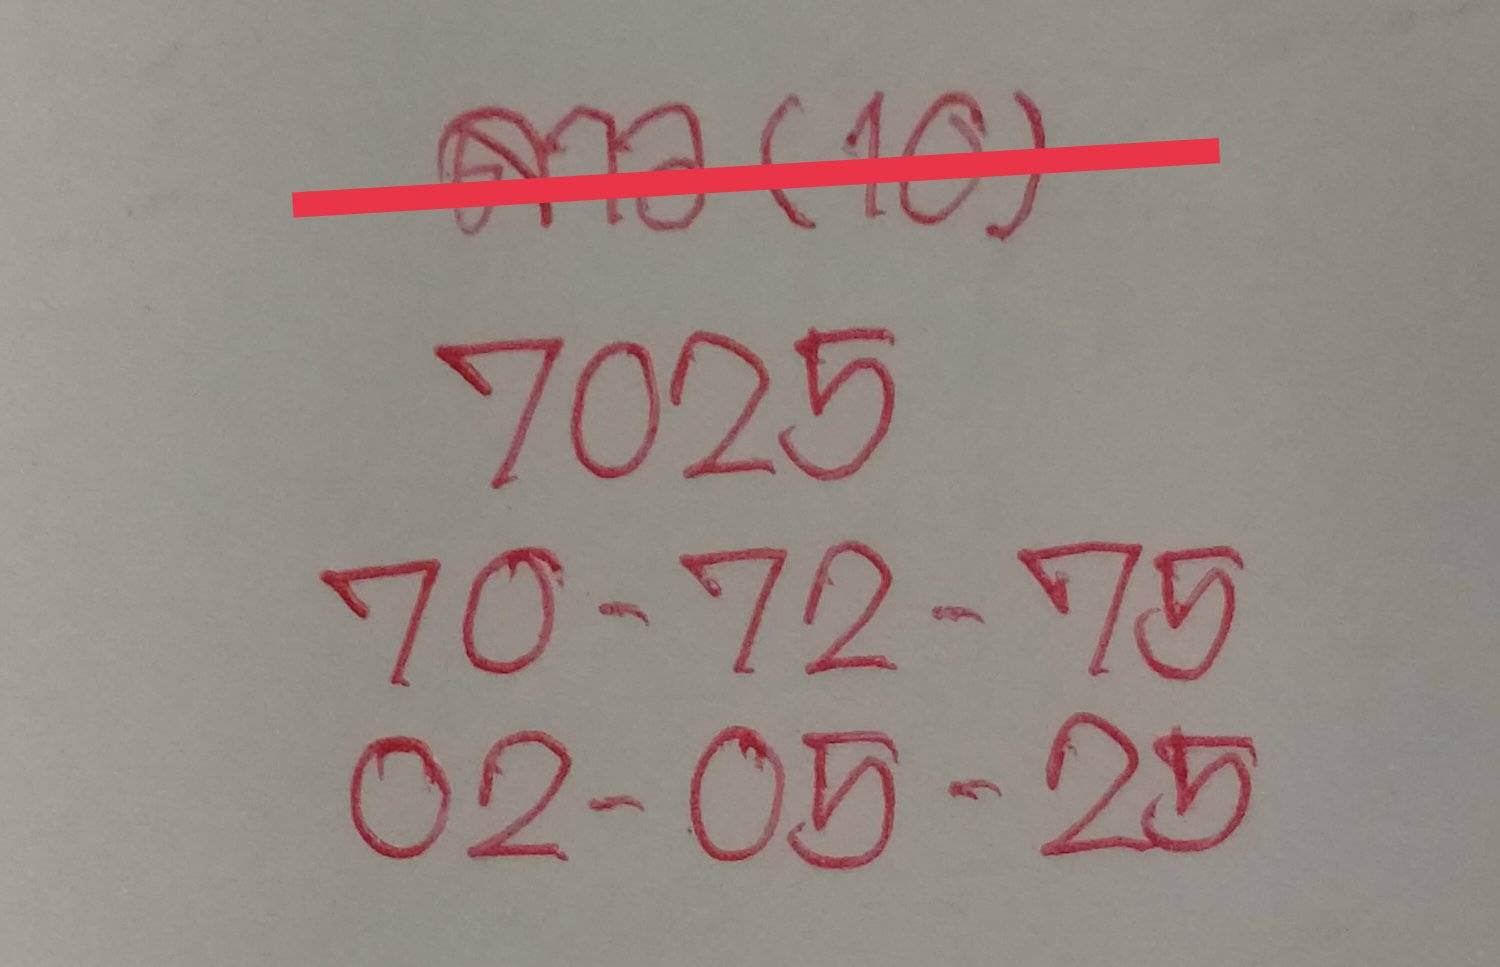 ลาว (10)
7025
70-72-75
02-05-25